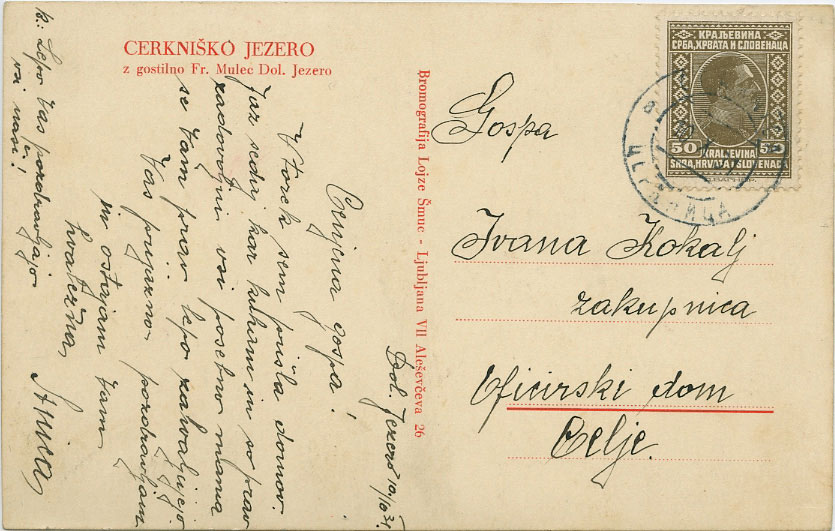 CERKNIŠKO JEZERO
z gostilno Fr. Mulec Dol. Jezero
Bromografija Lojze Šmuc - Ljubljana VII Aleševčeva 26
КРАЉЕВИНА
СРБА, ХРВАТА И СЛОВЕНАЦА
50 50
KRALJEVINA
SRBA, HRVATA I SLOVENACA
Gospa
Ivana Kokalj
zakupnica
Oficirski dom
Celje.
Dol. Jezero 10/10 31.
Cenjena gospa!
V torek sem prišla domov.
Jaz sedaj kar kuham in so prav
zadovoljni vsi posebno mama
se Vam prav lepo zahvaljujejo
Vas prijazno pozdravljam
in ostajam Vam
hvaležna
Anica
Lepo Vas pozdravljajo
vsi naši!